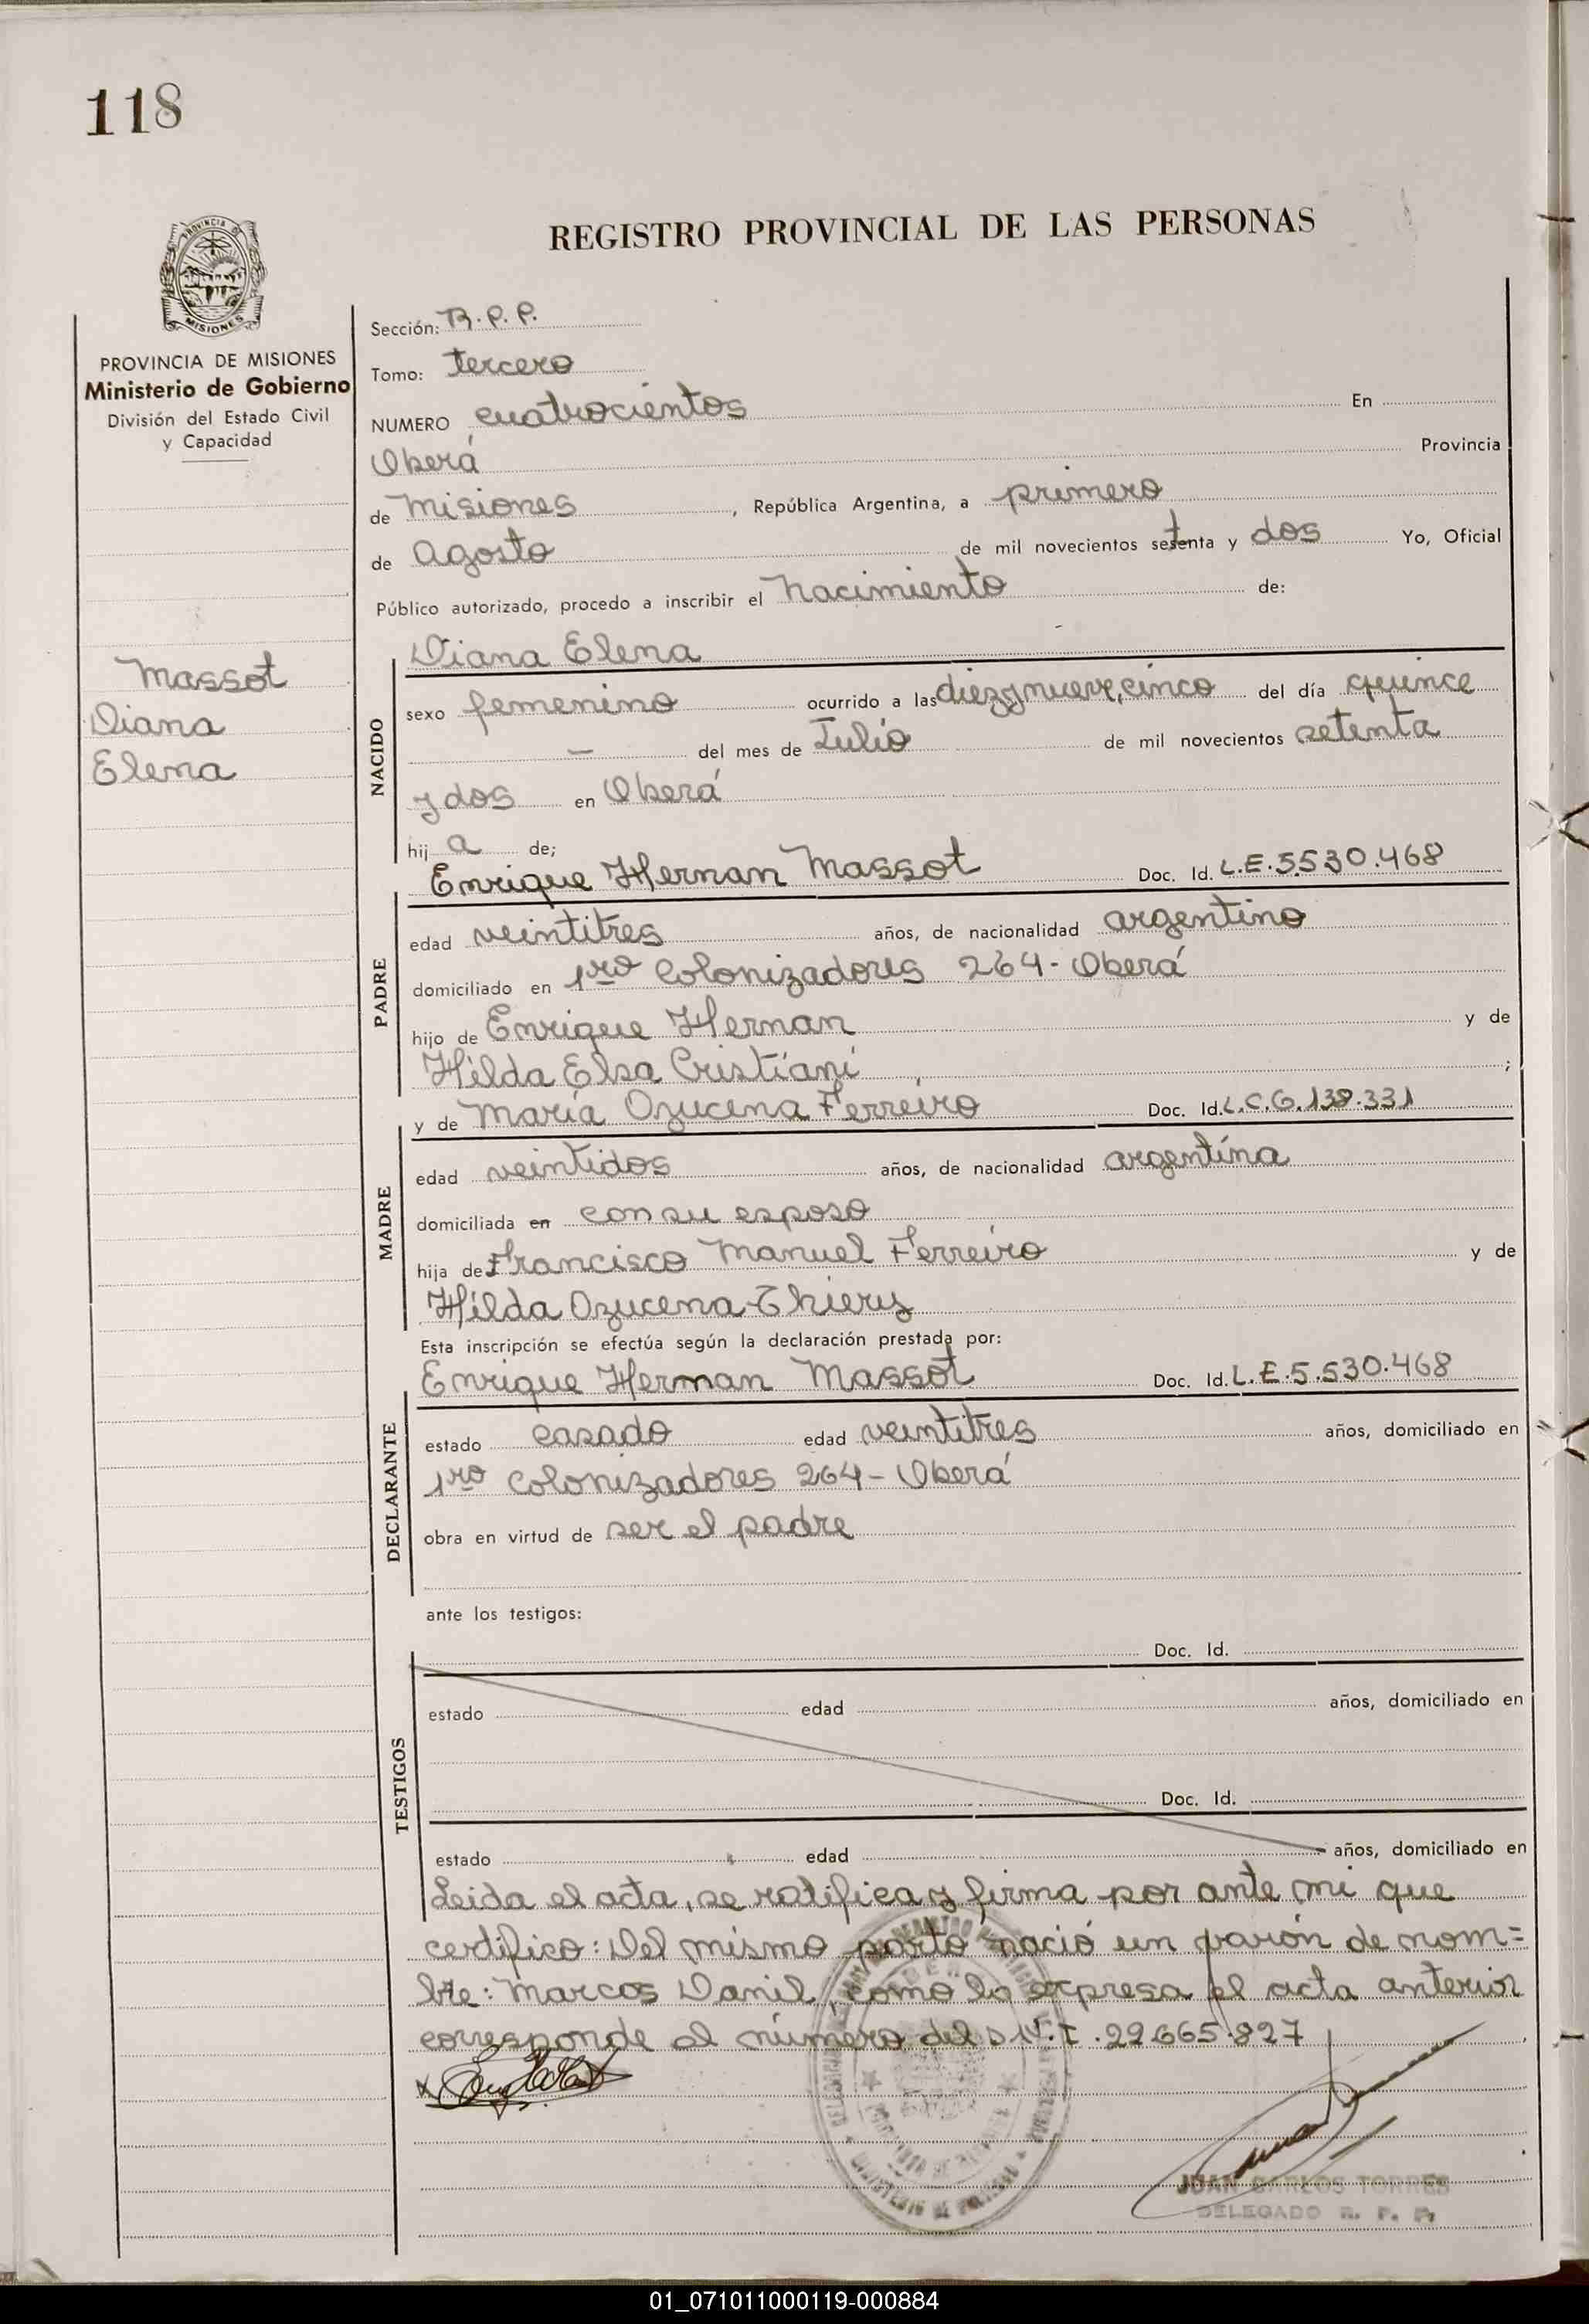 118
REGISTRO PROVINCIAL DE LAS PERSONAS
PROVINCIA DE MISIONES
Ministerio de Gobierno
División del Estado Civil
y Capacidad
Massot
Diana
Elena
Sección: R.P.P.
Tomo: tercero
NUMERO cuatrocientos En
Oberá Provincia
de Misiones, República Argentina, a primero
de Agosto de mil novecientos setenta y dos Yo, Oficial
Público autorizado, procedo a inscribir el Nacimiento de:
NACIDO
Diana Elena
sexo femenino ocurrido a las diezynueve,cinco del día quince
— del mes de Julio de mil novecientos setenta
y dos en Oberá
hija de;
Enrique Hernan Massot Doc. Id. L.E.5.530.468
PADRE
edad veintitres años, de nacionalidad argentino
domiciliado en 1ro Colonizadores 264 - Oberá
hijo de Enrique Hernan y de
Hilda Elsa Cristiani ;
y de María Ozucena Ferreiro Doc. Id. L.C.6.138.331
MADRE
edad veintidos años, de nacionalidad argentina
domiciliada en con su esposo
hija de Francisco Manuel Ferreiro y de
Hilda Ozucena Thiery
Esta inscripción se efectúa según la declaración prestada por:
Enrique Herman Massot Doc. Id. L.E.5.530.468
DECLARANTE
estado casado edad veintitres años, domiciliado en
1ro Colonizadores 264 - Oberá
obra en virtud de ser el padre
ante los testigos:
Doc. Id.
TESTIGOS
estado edad años, domiciliado en
Doc. Id.
estado edad años, domiciliado en
Leida el acta, se ratifica y firma por ante mi que
certifico: Del mismo parto nació un varón de nom=
bre: Marcos Danil, como lo expresa el acta anterior
corresponde al número del D.N.I. 22.665.827
JUAN CARLOS TORRES
DELEGADO R. P. P.
01_071011000119-000884